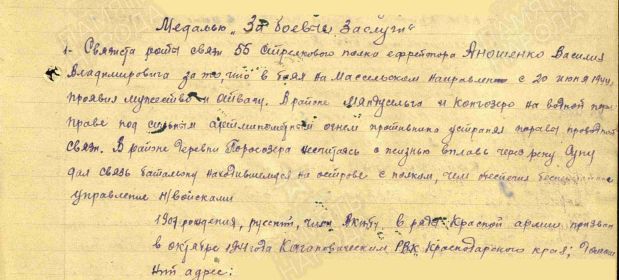 Медалью „За боевые Заслуги"
1- Связиста роты связи 55 Стрелкового полка ефрейтора Аношенко Василия
Владимировича за то, что в боях на Массельском направлен. с 20 июня 1944
проявил мужество и отвагу. В районе Мяндусельга иКонтозеро на водной пере
праве под сильным артминометным огнем противника устранял порывы проводной
связи. В районе деревни Поросозера несчитаясь с жизнью вплавь через реку Суну
дал связь батальону находившемуся на острове с полком, чем обеспечил
управление н/войсками
1907 рождения, русский, член ВКП/б/ в рядах Красной армии призван
в октябре 1941 года Кагановическим РВК Краснодарского края;
адрес: